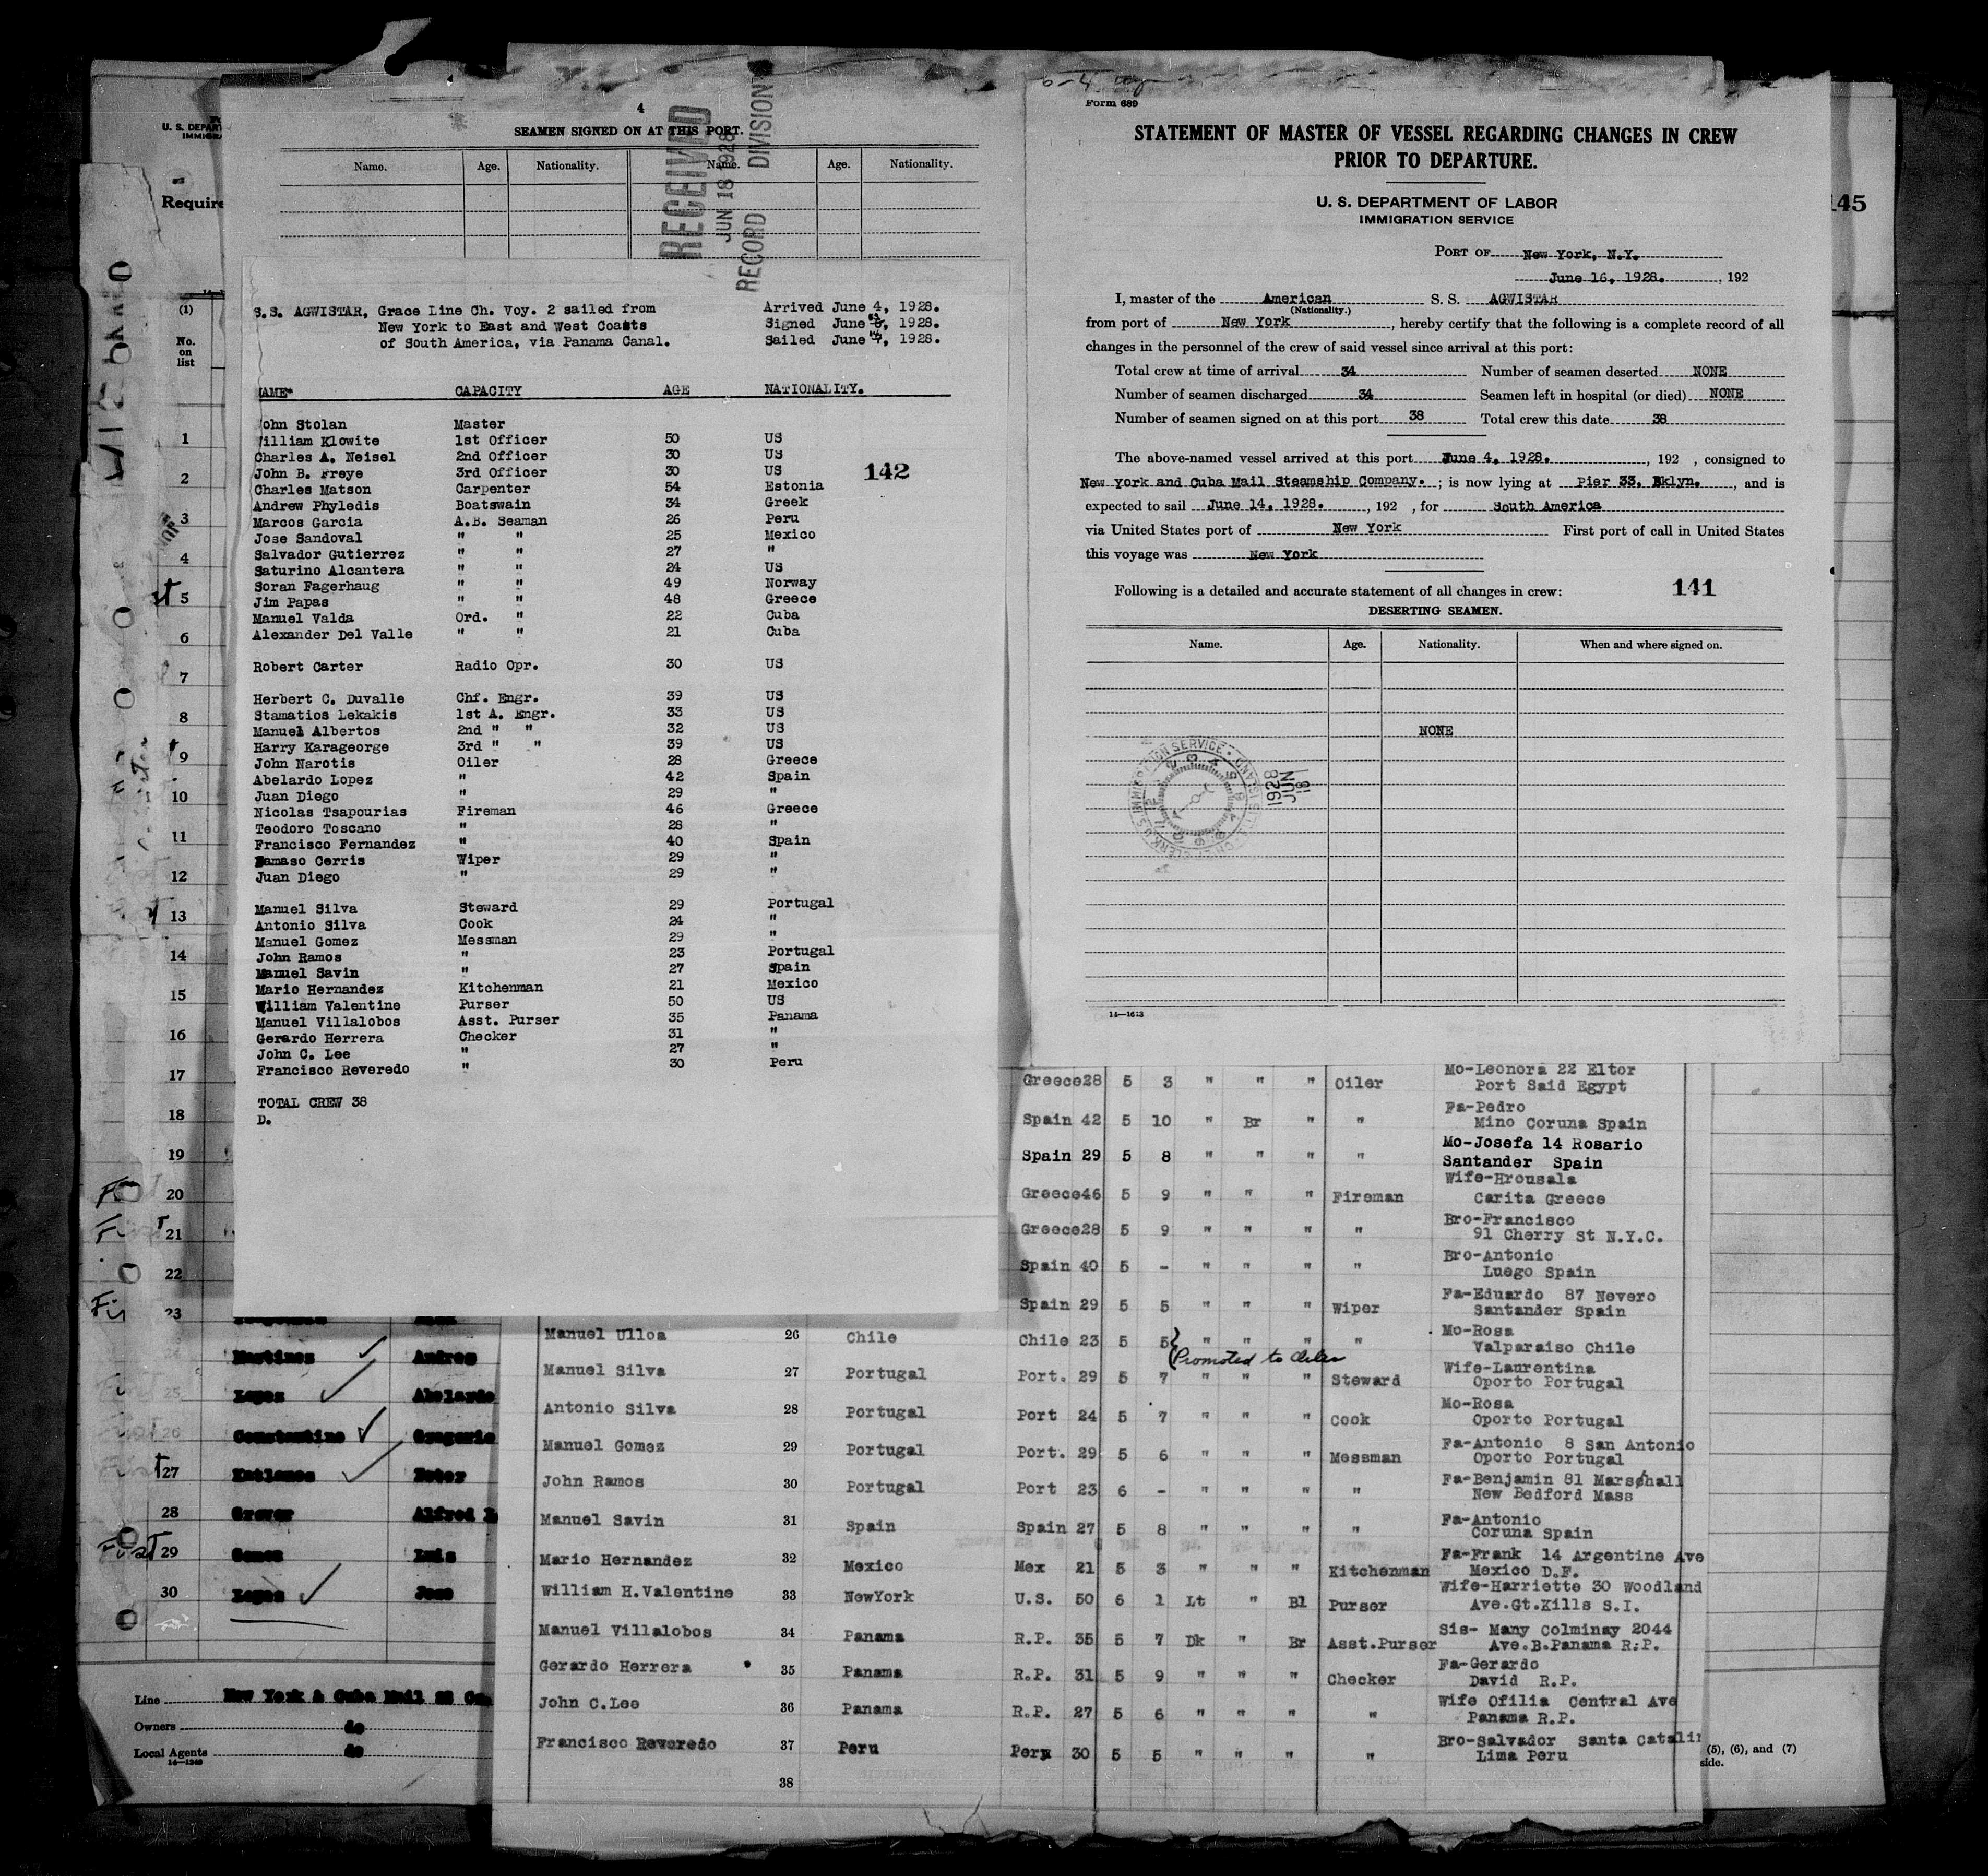 4
SEAMEN SIGNED ON AT THIS PORT.
Name. Age. Nationality. Name. Age. Nationality.
RECEIVED
JUN 18 1928
RECORD DIVISION
S.S. AGWISTAR, Grace Line Ch. Voy. 2 sailed from Arrived June 4, 1928.
New York to East and West Coasts Signed June , 1928.
of South America, via Panama Canal. Sailed June , 1928.
NAME CAPACITY AGE NATIONALITY.
John Stolan Master
William Klowite 1st Officer 50 US
Charles A. Neisel 2nd Officer 30 US
John B. Freye 3rd Officer 30 US
142
Charles Matson Carpenter 54 Estonia
Andrew Phyledis Boatswain 34 Greek
Marcos Garcia A.B. Seaman 26 Peru
Jose Sandoval " " 25 Mexico
Salvador Gutierrez " " 27 "
Saturino Alcantera " " 24 US
Soran Fagerhaug " " 49 Norway
Jim Papas " " 48 Greece
Manuel Valda Ord. " 22 Cuba
Alexander Del Valle " " 21 Cuba
Robert Carter Radio Opr. 30 US
Herbert C. Duvalle Chf. Engr. 39 US
Stamatios Lekakis 1st A. Engr. 33 US
Manuel Albertos 2nd " " 32 US
Harry Karageorge 3rd " " 39 US
John Narotis Oiler 28 Greece
Abelardo Lopez " 42 Spain
Juan Diego " 29 "
Nicolas Tsapourias Fireman 46 Greece
Teodoro Toscano " 28 "
Francisco Fernandez " 40 Spain
Damaso Cerris Wiper 29 "
Juan Diego " 29 "
Manuel Silva Steward 29 Portugal
Antonio Silva Cook 24 "
Manuel Gomez Messman 29 "
John Ramos " 23 Portugal
Manuel Savin " 27 Spain
Mario Hernandez Kitchenman 21 Mexico
William Valentine Purser 50 US
Manuel Villalobos Asst. Purser 35 Panama
Gerardo Herrera Checker 31 "
John C. Lee " 27 "
Francisco Reveredo " 30 Peru
TOTAL CREW 38
D.
Form 689
STATEMENT OF MASTER OF VESSEL REGARDING CHANGES IN CREW
PRIOR TO DEPARTURE.
U. S. DEPARTMENT OF LABOR
IMMIGRATION SERVICE
PORT OF New York, N.Y.
June 16, 1928. , 192
I, master of the American S. S. AGWISTAR
(Nationality.)
from port of New York , hereby certify that the following is a complete record of all
changes in the personnel of the crew of said vessel since arrival at this port:
Total crew at time of arrival 34 Number of seamen deserted NONE
Number of seamen discharged 34 Seamen left in hospital (or died) NONE
Number of seamen signed on at this port 38 Total crew this date 38
The above-named vessel arrived at this port June 4, 1928. , 192 , consigned to
New York and Cuba Mail Steamship Company. ; is now lying at Pier 33, Bklyn. , and is
expected to sail June 14, 1928. , 192 , for South America
via United States port of New York First port of call in United States
this voyage was New York
Following is a detailed and accurate statement of all changes in crew: 141
DESERTING SEAMEN.
Name. Age. Nationality. When and where signed on.
NONE
1928
JUN
18
14—1613
145
U. S. DEPAR
IMMIGRA
Require
(1)
No.
on
list
1
2
3
4
5
6
7
8
9
10
11
12
13
14
15
16
17
18
19
20
21
22
23
Greece 28 5 3 " " " Oiler Mo-Leonora 22 Eltor
Port Said Egypt
Spain 42 5 10 " Br " " Fa-Pedro
Mino Coruna Spain
Spain 29 5 8 " " " " Mo-Josefa 14 Rosario
Santander Spain
Greece 46 5 9 " " " Fireman Wife-Hrousala
Carita Greece
Greece 28 5 9 " " " " Bro-Francisco
91 Cherry St N.Y.C.
Spain 40 5 - " " " " Bro-Antonio
Luego Spain
Spain 29 5 5 " " " Wiper Fa-Eduardo 87 Nevero
Santander Spain
Manuel Ulloa 26 Chile Chile 23 5 5 " " " " Mo-Rosa
Valparaiso Chile
Promoted to Oiler
Manuel Silva 27 Portugal Port. 29 5 7 " " " Steward Wife-Laurentina
Oporto Portugal
Antonio Silva 28 Portugal Port 24 5 7 " " " Cook Mo-Rosa
Oporto Portugal
Manuel Gomez 29 Portugal Port. 29 5 6 " " " Messman Fa-Antonio 8 San Antonio
Oporto Portugal
John Ramos 30 Portugal Port 23 6 - " " " " Fa-Benjamin 81 Marschall
New Bedford Mass
Manuel Savin 31 Spain Spain 27 5 8 " " " " Fa-Antonio
Coruna Spain
Mario Hernandez 32 Mexico Mex 21 5 3 " " " Kitchenman Fa-Frank 14 Argentine Ave
Mexico D.F.
William H.Valentine 33 NewYork U.S. 50 6 1 Lt " Bl Purser Wife-Harriette 30 Woodland
Ave.Gt.Kills S.I.
Manuel Villalobos 34 Panama R.P. 35 5 7 Dk " Br Asst.Purser Sis- Many Colminay 2044
Ave.B.Panama R.P.
Gerardo Herrera 35 Panama R.P. 31 5 9 " " " Checker Fa-Gerardo
David R.P.
John C.Lee 36 Panama R.P. 27 5 6 " " " " Wife Ofilia Central Ave
Panama R.P.
Francisco Reveredo 37 Peru Peru 30 5 5 " " " " Bro-Salvador Santa Catalin
Lima Peru
38
Martinez Andres
Lopez Abelardo
Constantino Gregorio
27 Peter
28 Grover Alfred
29 Gomez Luis
30 Lopez Jose
Line New York & Cuba Mail SS Co.
Owners do
Local Agents do
14—1240
(5), (6), and (7)
side.